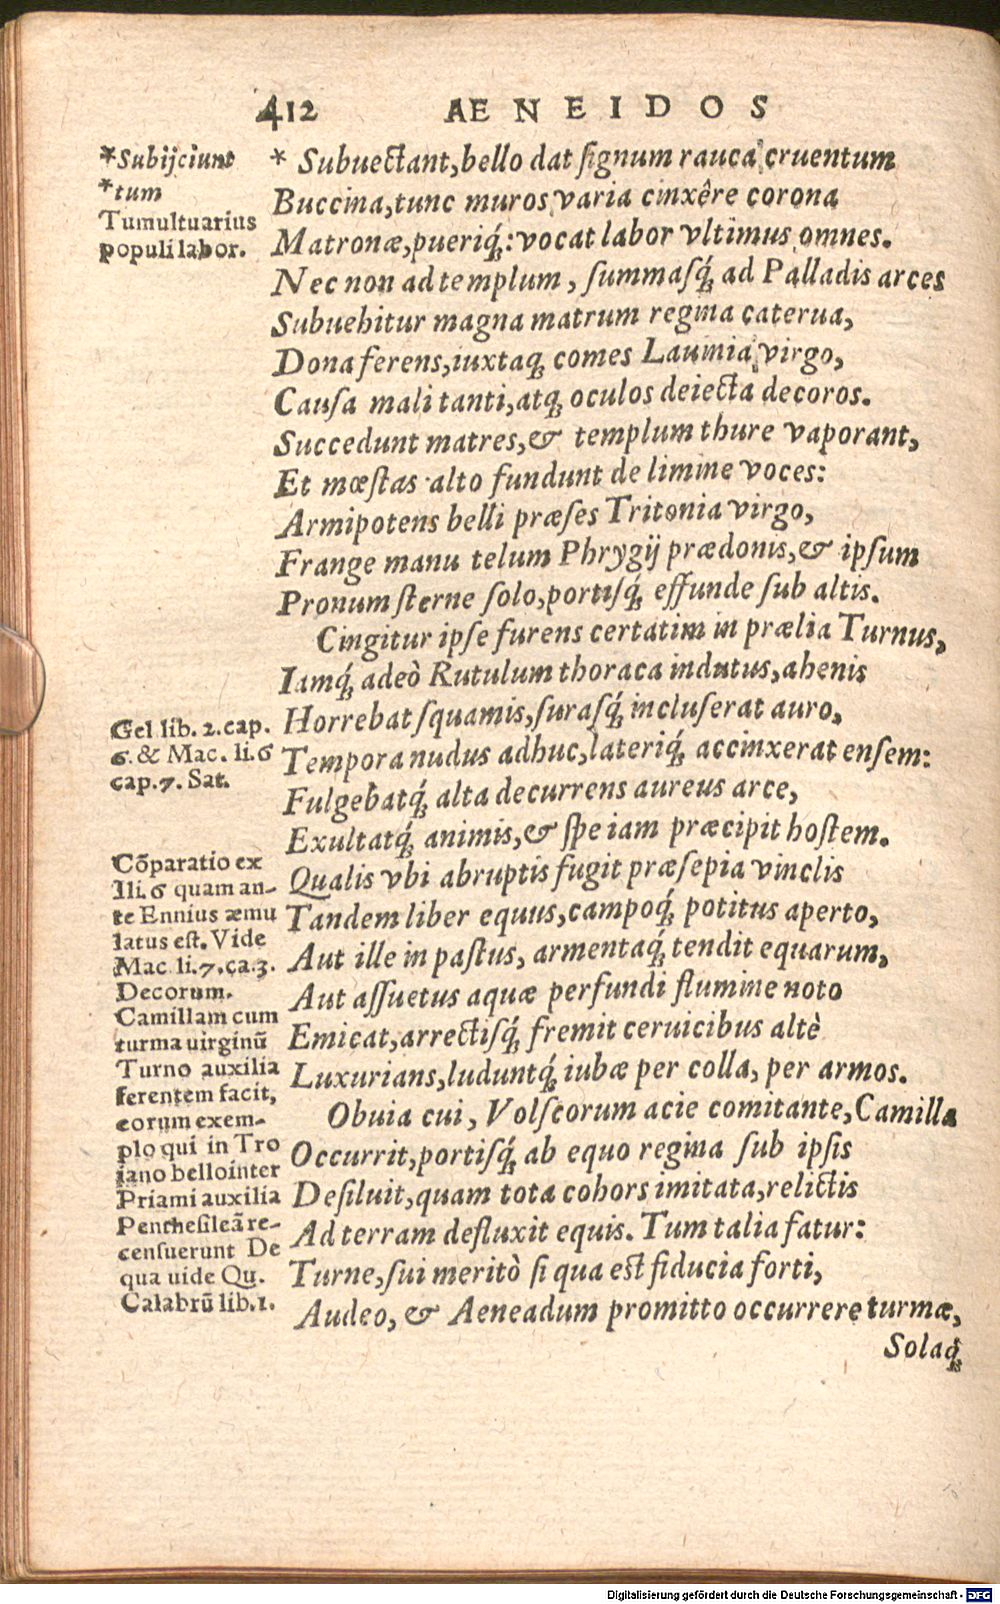 412 AENEIDOS
*Subijciunt
*tum
Tumultuarius
populi labor.
* Subuectant, bello dat signum rauca cruentum
Buccina, tunc muros varia cinxêre corona
Matronæ, pueriq́;: vocat labor vltimus omnes.
Nec non ad templum, summasq́; ad Palladis arces
Subuehitur magna matrum regina caterua,
Dona ferens, iuxtaq; comes Lauinia virgo,
Causa mali tanti, atq; oculos deiecta decoros.
Succedunt matres, & templum thure vaporant,
Et mœstas alto fundunt de limine voces:
Armipotens belli præses Tritonia virgo,
Frange manu telum Phrygij prædonis, & ipsum
Pronum sterne solo, portisq́; effunde sub altis.
Cingitur ipse furens certatim in prælia Turnus,
Iamq́; adeò Rutulum thoraca indutus, ahenis
Horrebat squamis, surasq́; incluserat auro,
Tempora nudus adhuc, lateriq́; accinxerat ensem:
Fulgebatq́; alta decurrens aureus arce,
Exultatq́; animis, & spe iam præcipit hostem.
Qualis vbi abruptis fugit præsepia vinclis
Tandem liber equus, campoq́; potitus aperto,
Aut ille in pastus, armentaq́; tendit equarum,
Aut assuetus aquæ perfundi flumine noto
Emicat, arrectisq́; fremit ceruicibus altè
Luxurians, luduntq́; iubæ per colla, per armos.
Obuia cui, Volscorum acie comitante, Camilla
Occurrit, portisq́; ab equo regina sub ipsis
Desiluit, quam tota cohors imitata, relictis
Ad terram defluxit equis. Tum talia fatur:
Turne, sui meritò si qua est fiducia forti,
Audeo, & Aeneadum promitto occurrere turmæ,
Solaq́;
Gel lib. 2. cap.
6. & Mac. li. 6
cap. 7. Sat.
Cõparatio ex
Ili. 6 quam an-
te Ennius æmu
latus est. Vide
Mac li. 7. ca. 3.
Decorum.
Camillam cum
turma uirginũ
Turno auxilia
ferentem facit,
eorum exem-
plo qui in Tro
iano bello inter
Priami auxilia
Penthesileã re-
censuerunt De
qua uide Qu.
Calabrũ lib. 1.
Digitalisierung gefördert durch die Deutsche Forschungsgemeinschaft - DFG